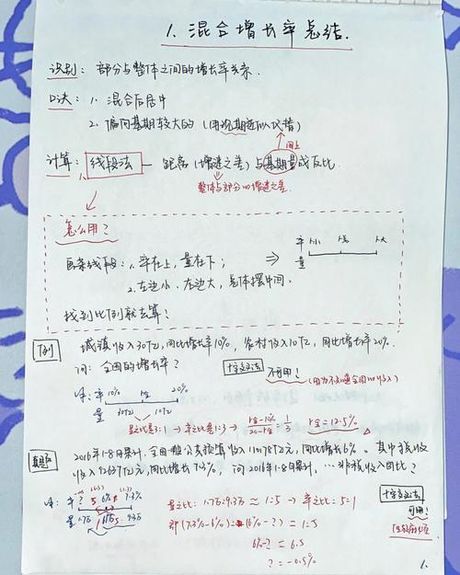 1. 混合增长率总结.
识别: 部分与整体之间的增长率关系.
口诀: 1. 混合后居中
2. 偏向基期较大的 (用现期近似代替)
同上
计算: 线段法 — 距离 (增速之差) 与基期量成反比.
整体与部分的增速之差.
怎么用?
画条线段: 1. 率在上, 量在下;
2. 左边小, 右边大, 总体摆中间.
找到比例就去算!
⇒ 率 r小 r总 r大
量
例 城镇收入30亿, 同比增长率10%, 农村收入10亿, 同比增长率20%.
问: 全国的增长率?
十字交叉法 不可用! (因为不知道全国的收入)
率 10% r全 20%
量 30亿 10亿
量之比是3:1 → 率之比是1:3 → r全-10% / 20-r全 = 1/3 r全=12.5%
真题 2016年1-8月累计, 全国一般公共预算收入
同比增长6%. 其中税收
收入 同比增长7.3%, 问2016年1-8月累计, … 非税收入同比?
率 ? 6% 7.3%
量 1.7万 9.3万
量之比: 1.7万:9.3万 ≈ 1:5 → 率之比: 5:1
即 (7.3%-6%):(6%-?) = 1:5
6%-? = 6.5
? = -0.5%
十字交叉法
可用!
1.